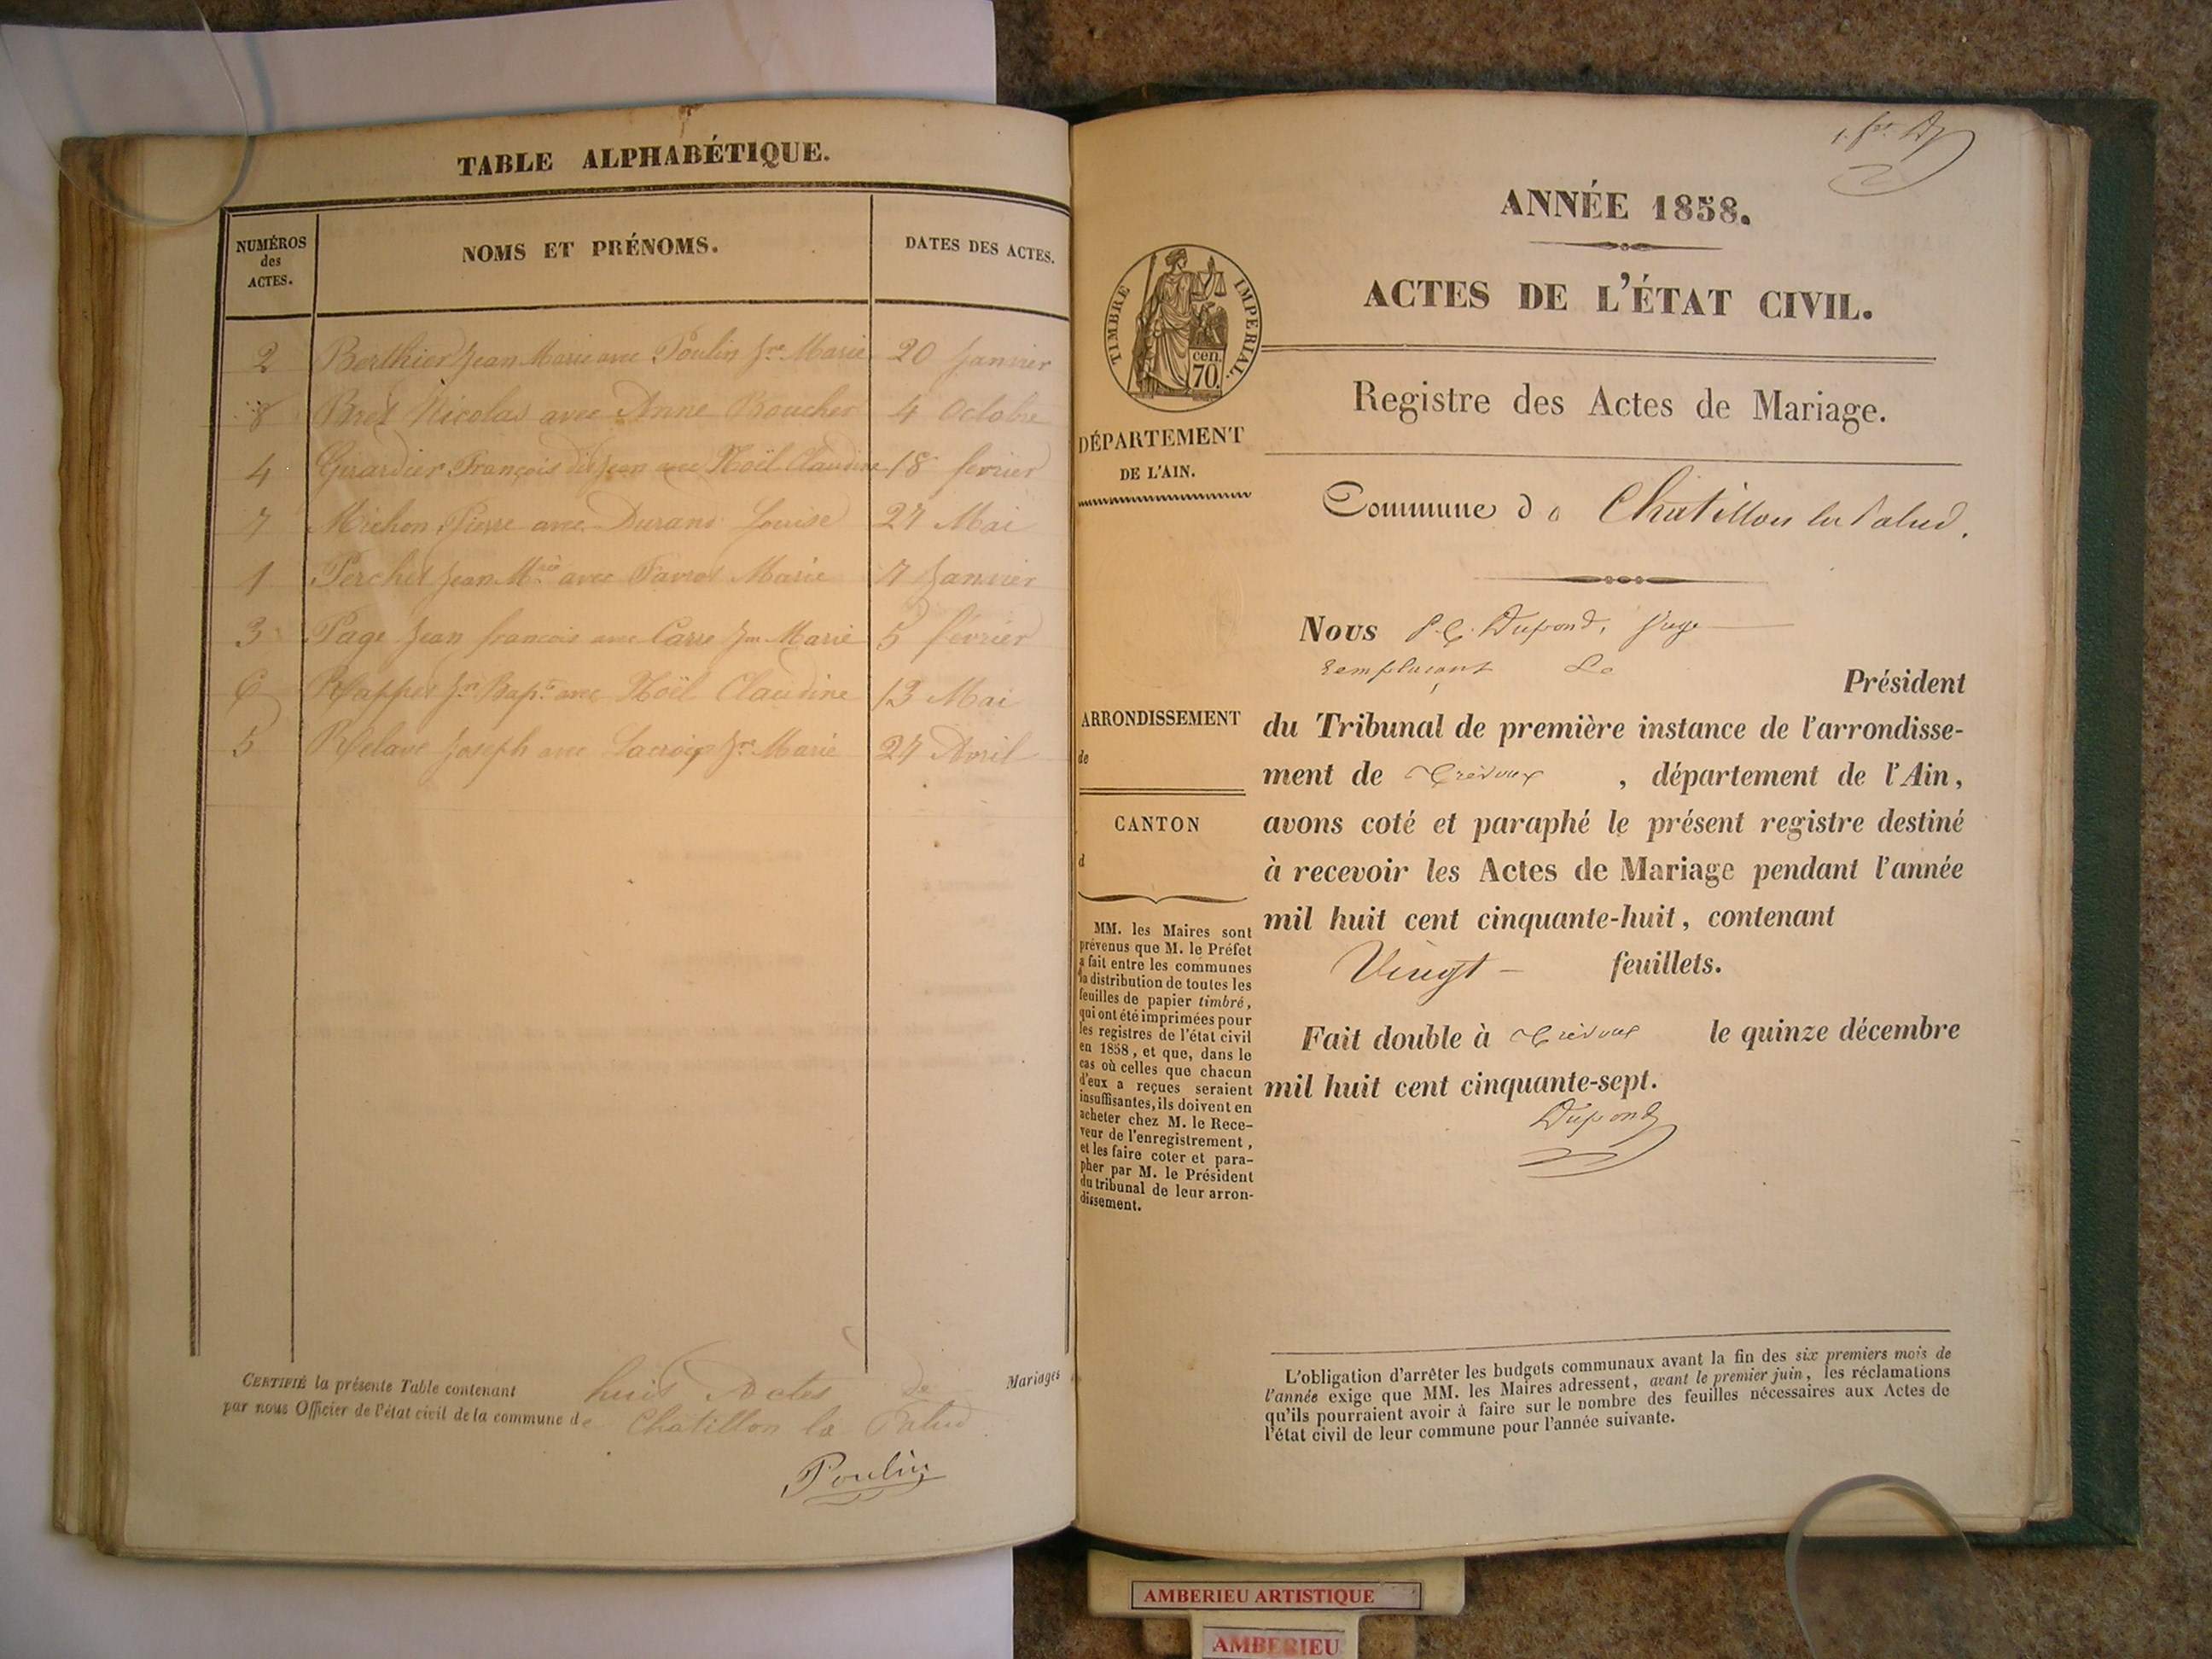 TABLE ALPHABÉTIQUE.
NUMÉROS
des
ACTES.
NOMS ET PRÉNOMS.
DATES DES ACTES.
2 Berthier Jean Marie avec Poulin Jne Marie 20 Janvier
8 Bret Nicolas avec Anne Boucher 4 Octobre
4 Girardier François dit Jean avec Noël Claudine 18 fevrier
7 Michon Pierre avec Durand Louise 27 Mai
1 Perchet Jean Mrie avec Marie 7 Janvier
3 Page Jean francois avec Carre Marie 5 février
6 Jn Bapte avec Noël Claudine 13 Mai
5 Joseph avec Lacroix Jne Marie 27 Avril
CERTIFIÉ la présente Table contenant huit Actes de Mariages
par nous Officier de l'état civil de la commune de Chatillon la Palud
Poulin
ANNÉE 1858.
ACTES DE L'ÉTAT CIVIL.
TIMBRE IMPERIAL.
cen.
70.
Registre des Actes de Mariage.
DÉPARTEMENT
DE L'AIN.
Commune de Chatillon la Palud.
Nous Dupond, Juge
remplaçant Le
Président
ARRONDISSEMENT
de
du Tribunal de première instance de l'arrondisse-
ment de Trévoux, département de l'Ain,
avons coté et paraphé le présent registre destiné
à recevoir les Actes de Mariage pendant l'année
mil huit cent cinquante-huit, contenant
Vingt feuillets.
Fait double à Trévoux le quinze décembre
mil huit cent cinquante-sept.
Dupond
CANTON
d
MM. les Maires sont
prévenus que M. le Préfet
a fait entre les communes
la distribution de toutes les
feuilles de papier timbré,
qui ont été imprimées pour
les registres de l'état civil
en 1858, et que, dans le
cas où celles que chacun
d'eux a reçues seraient
insuffisantes, ils doivent en
acheter chez M. le Rece-
veur de l'enregistrement,
et les faire coter et para-
pher par M. le Président
du tribunal de leur arron-
dissement.
L'obligation d'arrêter les budgets communaux avant la fin des six premiers mois de
l'année exige que MM. les Maires adressent, avant le premier juin, les réclamations
qu'ils pourraient avoir à faire sur le nombre des feuilles nécessaires aux Actes de
l'état civil de leur commune pour l'année suivante.
AMBERIEU ARTISTIQUE
AMBERIEU